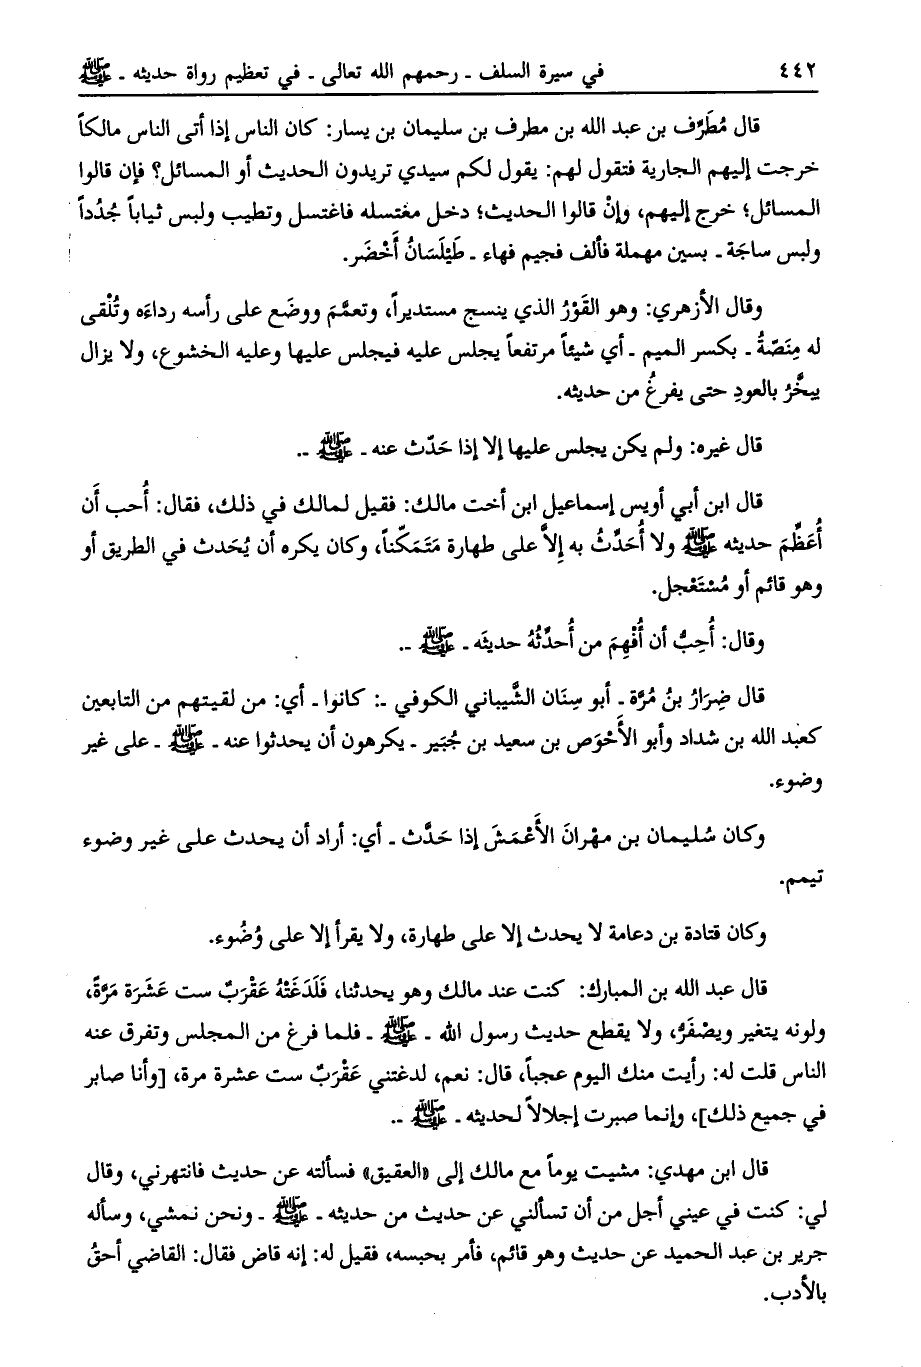 ٤٤٢ في سيرة السلف ـ رحمهم الله تعالى ـ في تعظيم رواة حديثه ـ ﷺ
قال مُطَرِّف بن عبد الله بن مطرف بن سليمان بن يسار: كان الناس إذا أتى الناس مالكاً
خرجت إليهم الجارية فتقول لهم: يقول لكم سيدي تريدون الحديث أو المسائل؟ فإن قالوا
المسائل؛ خرج إليهم، وإنْ قالوا الحديث؛ دخل مغتسله فاغتسل وتطيب ولبس ثياباً جُدُداً
ولبس ساجَة ـ بسين مهملة فألف فجيم فهاء ـ طَيْلَسَانُ أَخْضَر.
وقال الأزهري: وهو القَوْرُ الذي ينسج مستديراً، وتعمَّمَ ووضَع على رأسه رداءَه وتُلْقى
له مِنَصّةُ ـ بكسر الميم ـ أي شيئاً مرتفعاً يجلس عليه فيجلس عليها وعليه الخشوع، ولا يزال
يبخَّرُ بالعودِ حتى يفرغُ من حديثه.
قال غيره: ولم يكن يجلس عليها إلا إذا حَدّث عنه ـ ﷺ ـ.
قال ابن أبي أويس إسماعيل ابن أخت مالك: فقيل لمالك في ذلك، فقال: أُحب أَن
أُعَظِّمَ حديثه ﷺ ولا أُحَدِّثُ به إلاَّ على طهارة مَتَمَكّناً، وكان يكره أن يُحَدث في الطريق أو
وهو قائم أو مُسْتَعْجل.
وقال: أُحِبُّ أن أُفْهِمَ من أُحدِّثُهُ حديثَه ـ ﷺ ـ.
قال ضِرَارُ بنُ مُرَّة ـ أبو سِنَان الشَّيباني الكوفي ـ: كانوا ـ أي: من لقيتهم من التابعين
كعبد الله بن شداد وأبو الأَحْوَص بن سعيد بن جُبَير ـ يكرهون أن يحدثوا عنه ـ ﷺ ـ على غير
وضوء.
وكان سُليمان بن مهْرانَ الأَعْمَشَ إذا حَدَّث ـ أي: أراد أن يحدث على غير وضوء
تيمم.
وكان قتادة بن دعامة لا يحدث إلا على طهارة، ولا يقرأ إلا على وُضُوء.
قال عبد الله بن المبارك: كنت عند مالك وهو يحدثنا، فَلَدَغَتْهُ عَقْرَبٌ ست عَشَرَة مَرَّةً،
ولونه يتغير ويصْفَرُّ، ولا يقطع حديث رسول الله ـ ﷺ ـ فلما فرغ من المجلس وتفرق عنه
الناس قلت له: رأيت منك اليوم عجباً، قال: نعم، لدغتني عَقْرَبٌ ست عشرة مرة، [وأنا صابر
في جميع ذلك]، وإنما صبرت إجلالاً لحديثه ـ ﷺ ـ.
قال ابن مهدي: مشيت يوماً مع مالك إلى «العقيق» فسألته عن حديث فانتهرني، وقال
لي: كنت في عيني أجل من أن تسألني عن حديث من حديثه ـ ﷺ ـ ونحن نمشي، وسأله
جرير بن عبد الحميد عن حديث وهو قائم، فأمر بحبسه، فقيل له: إنه قاض فقال: القاضي أحقُّ
بالأدب.